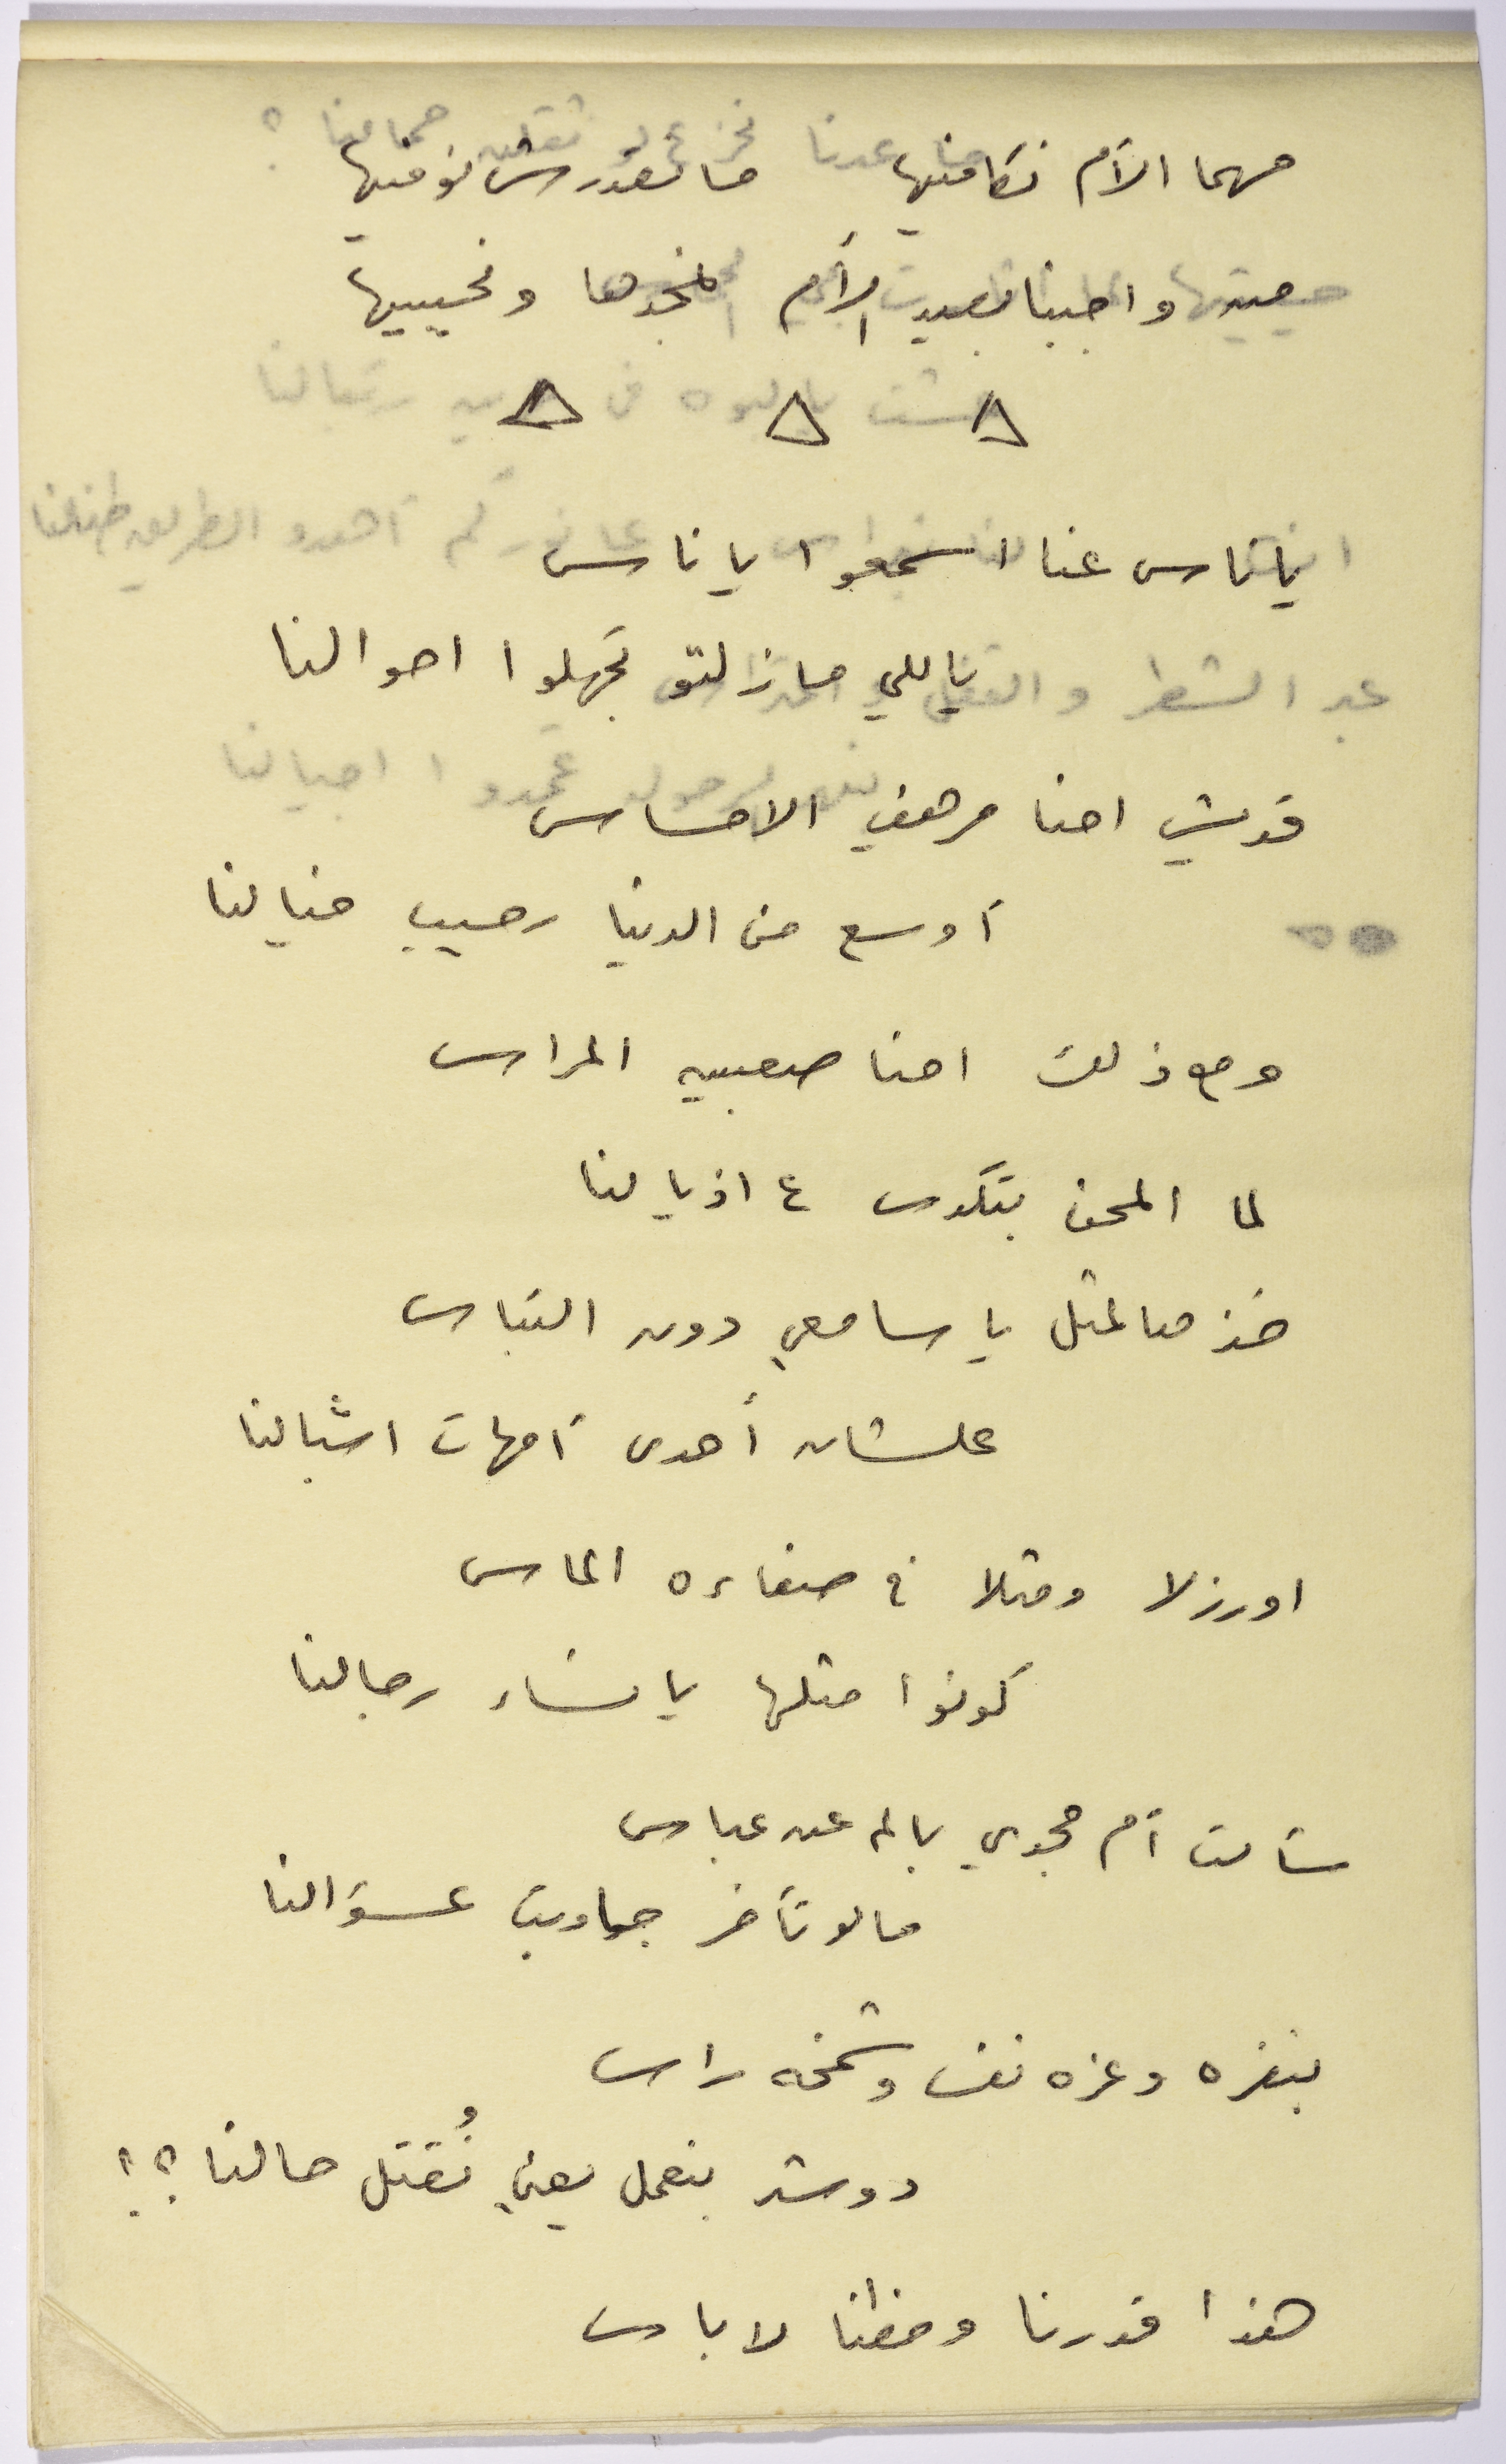 مهما الأم نكافيها ما نقدرش نوفيها
واجبنا بعيد الأم نمجدها ونحييها
يا ناس عنا اسمعوا يا ناس
ياللي ما زلتو تجهلوا احوالنا
قديش احنا مرهفي الاحساس
أوسع من الدنيا رحيب خيالنا
ومع ذلك احنا صعبين المراس
لما المحن بتكدس ع اذيالنا
خذ مثل يا سامعي دون التباس
علشان أحدى أمهات اشبالنا
اورزلا ومثلا في صفاءه الماس
كونوا مثلها يا نساء رجالنا
سألت أم مجدي بالم عن عباس
مالو تأخر جاوبت عسؤالنا
بنفره وعزه نفس وشمخه راس
دوشر بنعمل يعني نُقتل حالنا ؟!
هذا قدرنا وحظنا لا باس